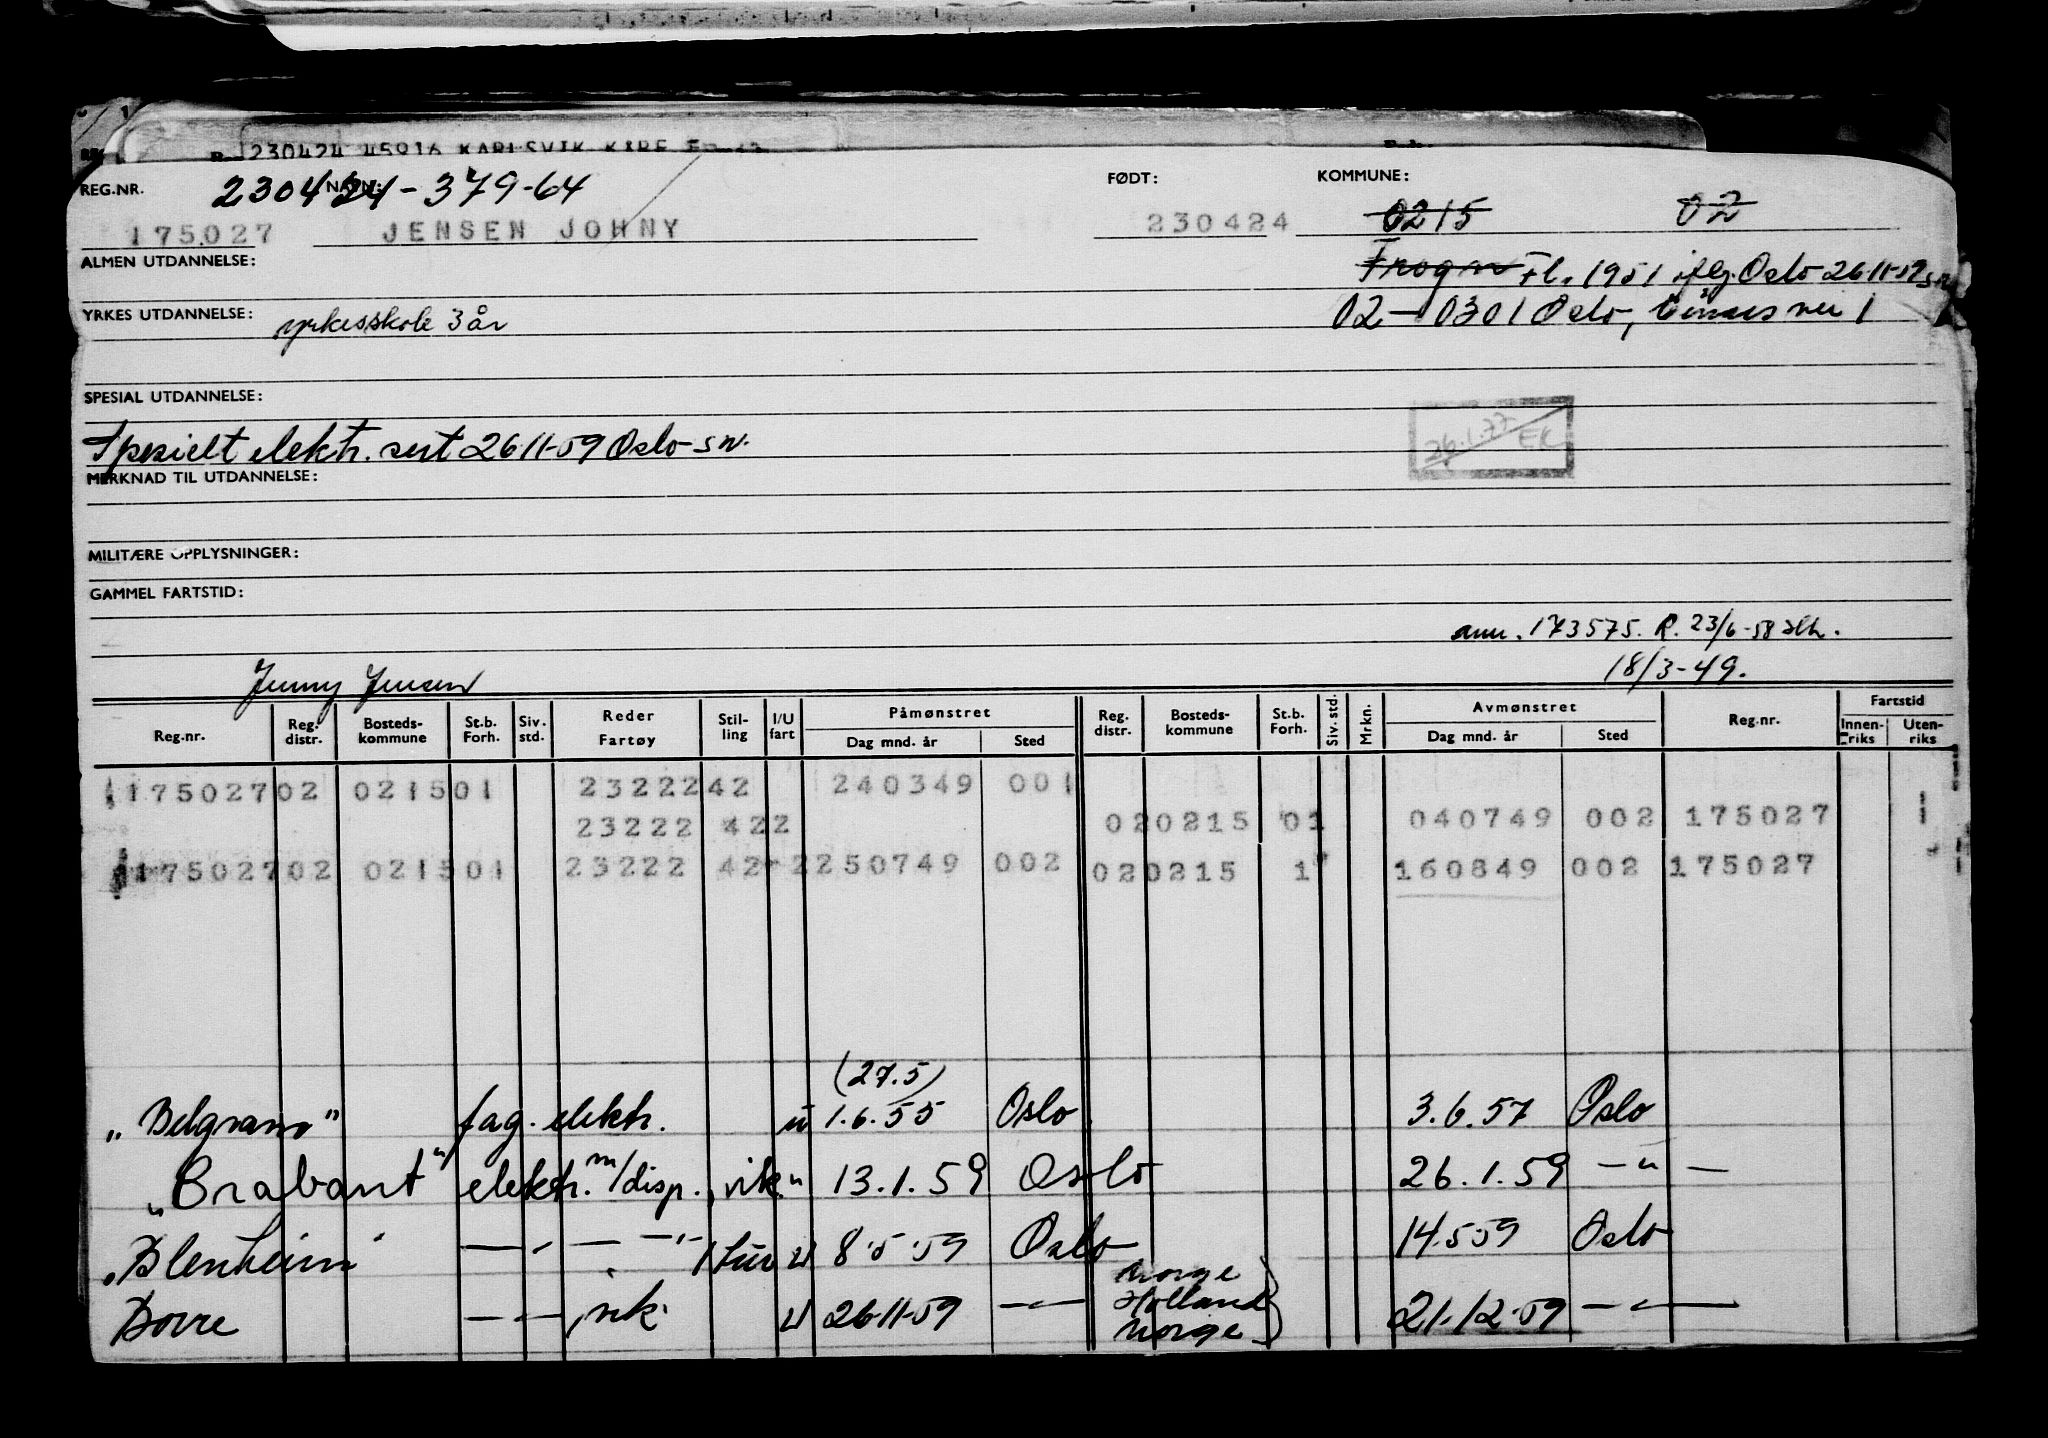 230424 45916 KARLSVIK KÅRE
REG.NR. NAVN: FØDT: KOMMUNE:
230424-379-64 0215 02
175027 JENSEN JOHNY 230424
ALMEN UTDANNELSE: Frogn Fl. 1951 iflg. Oslo 26 11-59 sn
YRKES UTDANNELSE: yrkesskole 3 år 02-0301 Oslo, 1
SPESIAL UTDANNELSE:
26.1.77 EK
Spesielt elektr. sert 26 11-59 Oslo-sn.
MERKNAD TIL UTDANNELSE:
MILITÆRE OPPLYSNINGER:
GAMMEL FARTSTID:
ann. 173575. R. 23/6-58
18/3-49.
Jenny Jensen
Reg.nr. Reg. distr. Bosteds- kommune St.b. Forh. Siv. std. Reder Fartøy Stil- ling I/U fart Påmønstret Dag mnd. år Sted Reg. distr. Bosteds- kommune St.b. Forh. Siv. std. Mrkn. Avmønstret Dag mnd. år Sted Reg.nr. Fartstid Innen- riks Uten- riks
175027 02 0215 01 23222 42 240349 001
23222 42 2 02 0215 01 040749 002 175027
175027 02 0215 01 23222 42 2 250749 002 02 0215 1 160849 002 175027
(27.5)
"Belgrano" fag. elektr. u 1.6.55 Oslo 3.6.57 Oslo
"Brabant" elektr. m/disp., vik. u 13.1.59 Oslo 26.1.59 — " —
"Blenheim" — " — — " — 1 tur u 8.5.59 Oslo 14.5 59 Oslo
Norge
Holland
Dovre — " — , vik. u 26 11-59 — " — Norge 21.12-59 — " —